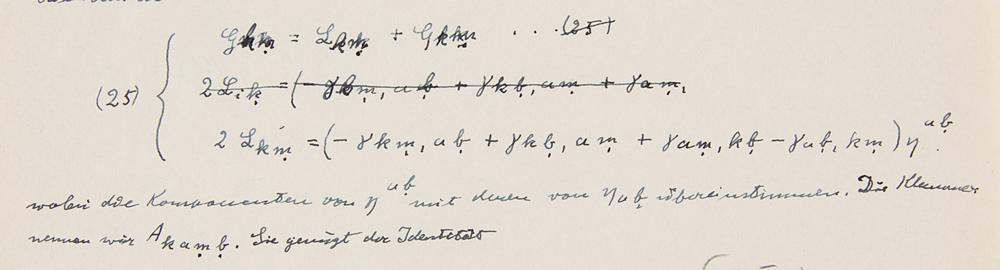 G_{km̤} = L_{km̤} + G_{km̤} . . . (25)
(25) 2 L_{iḳ} = (- γ_{kṃ}, aḅ + γ_{kḅ}, aṃ + γ_{aṃ},
2 L_{kṃ} = (- γ_{kṃ}, aḅ + γ_{kḅ}, aṃ + γ_{aṃ}, kḅ - γ_{aḅ}, kṃ) η^{aḅ}.
wobei die Komponenten von η^{aḅ} mit denen von η_{aḅ} übereinstimmen. Die Klammer
nennen wir A_{kaṃḅ}. Sie genügt der Identität